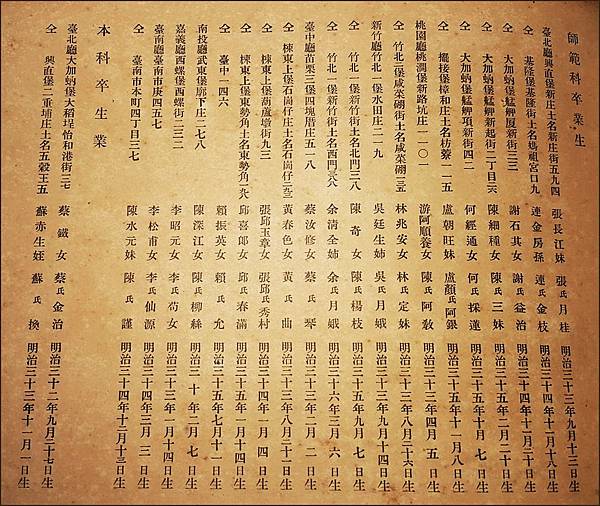 師範科卒業生
臺北廳興直堡新庄土名新庄街五九四 張長江妹 張氏月桂 明治三十三年九月十三日生
仝 基隆堡基隆街土名媽祖宮口九 連金房孫 連氏金枝 明治三十四年十一月十八日生
仝 大加蚋堡艋舺厦新街三三 謝石其女 謝氏益治 明治三十四年十二月二十日生
仝 大加蚋堡艋舺新起街一丁目三六 陳細種女 陳氏三妹 明治三十五年二月二十日生
仝 大加蚋堡艋舺頂新街四二 何經通女 何氏採蓮 明治三十五年十月七日生
仝 擺接堡樟和庄土名枋藔一一五 盧朝旺妹 盧顏氏阿銀 明治三十五年十一月八日生
桃園廳桃澗堡新路坑庄一一〇一 游阿順養女 陳氏阿敎 明治三十三年四月五日生
仝 竹北二堡咸菜硼街土名咸菜硼三五 林兆安女 林氏定妹 明治三十三年八月二十六日生
新竹廳竹北一堡水田庄二一九 吳廷生姉 吳氏月娥 明治三十三年九月十四日生
仝 竹北一堡新竹街土名北門三八 陳奇女 陳氏楊枝 明治三十五年九月七日生
仝 竹北一堡新竹街土名西門六八 余清全姉 余氏月娥 明治三十六年三月六日生
臺中廳苗栗三堡四塊厝庄五一八 蔡汝修女 蔡氏琴 明治三十三年二月二日生
仝 棟東上堡石崗仔庄土名石崗仔二九三 黃春色女 黃氏曲 明治三十三年八月二十一日生
仝 棟東上堡葫蘆墩街九三 張邱玉章女 張邱氏秀村 明治三十四年一月四日生
仝 棟東上堡東勢角庄土名東勢角一九八 邱喜郎女 邱氏春滿 明治三十五年一月四日生
仝 臺中一四六 賴振英女 賴氏允 明治三十五年七月十一日生
南投廳武東堡廓下庄二七八 陳深江女 陳氏柳絲 明治三十年二月七日生
嘉義廳西螺堡西螺街二三二 李昭元女 李氏苟女 明治三十三年一月十四日生
臺南廳臺南市庚四五七 李松甫女 李氏仙源 明治三十四年三月三日生
仝 臺南市本町四丁目三七 陳水元妹 陳氏謹 明治三十四年十二月十三日生
本科卒業生
臺北廳大加蚋堡大稻埕怡和港街三七 蔡鐵女 蔡氏金治 明治三十二年九月二十七日生
仝 興直堡二重埔庄土名五穀王五 蘇赤生姪 蘇氏換 明治三十三年十一月一日生